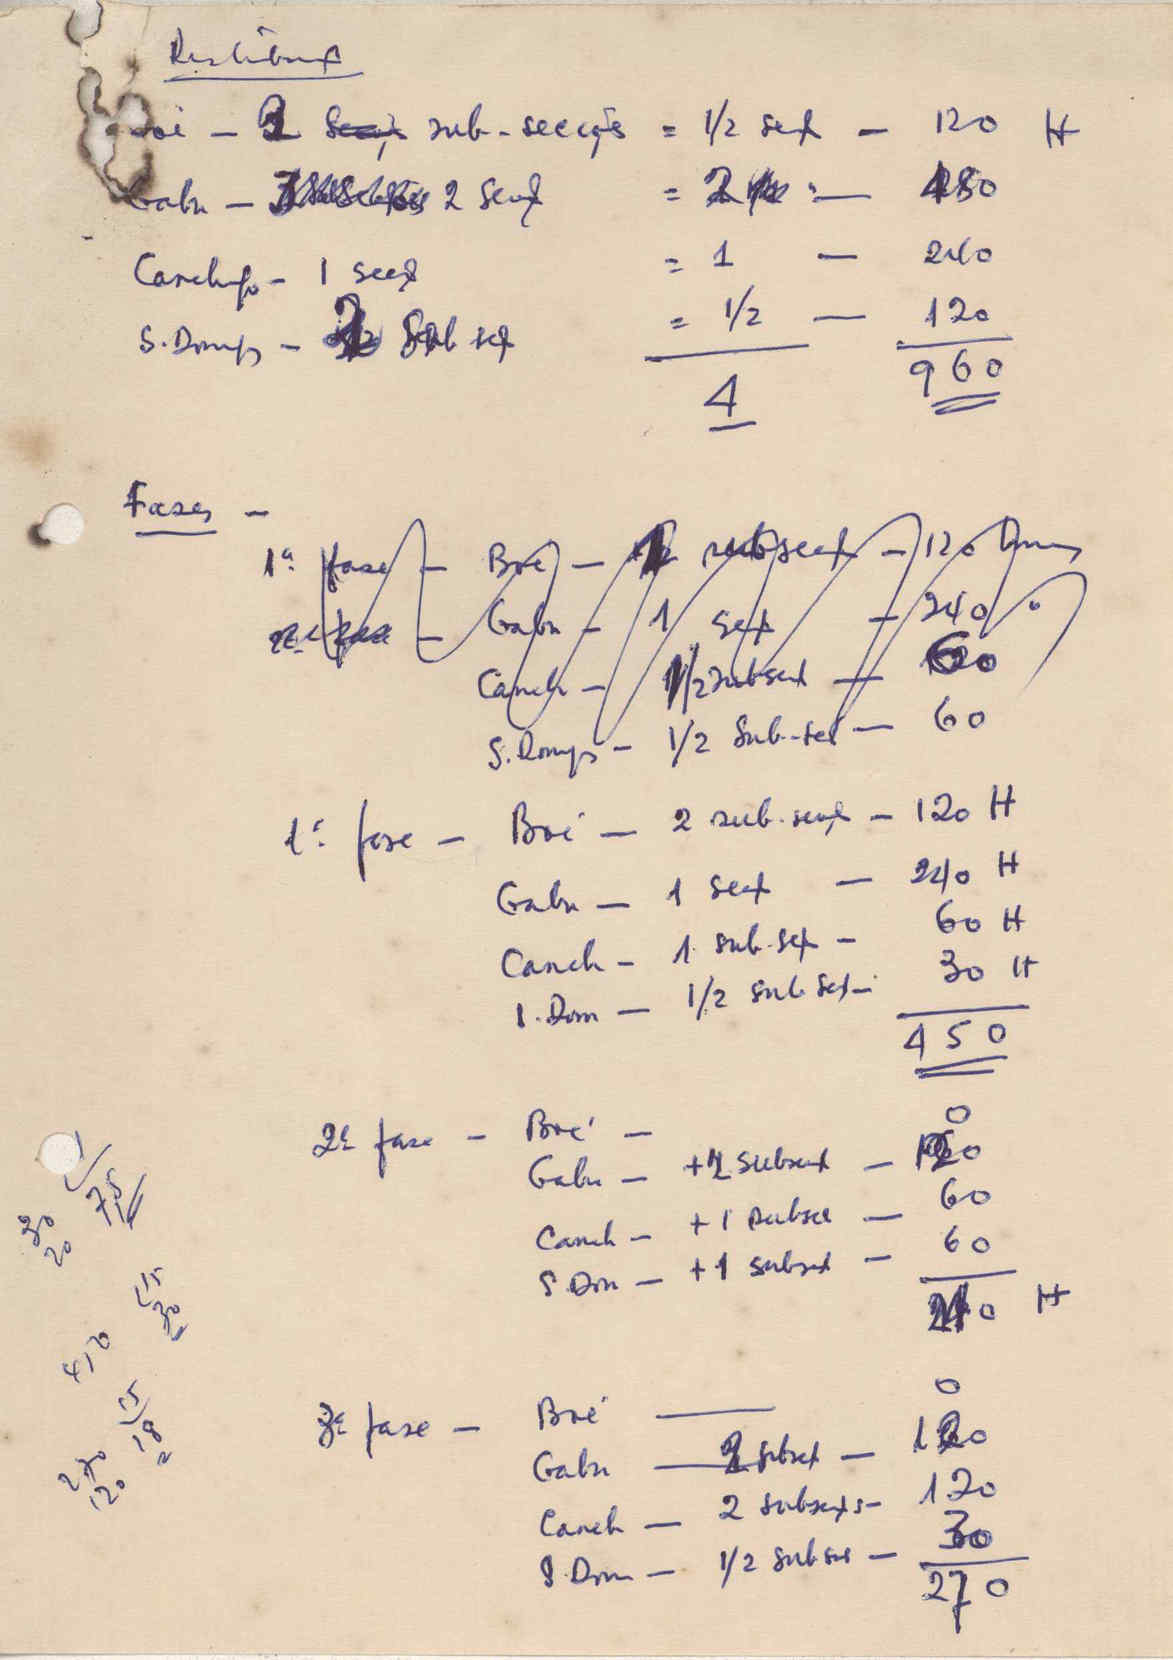 Boé - 2 sub-secções = 1/2 secç - 120 H
Gabu - 2 secç = 2 " - 480
Canchungo - 1 secç = 1 - 240
S. Doming - 2 Sub secç = 1/2 - 120
4 960
Fases -
1ª fase - Boé - 2 subsecç - 120 homens
2ª fase - Gabu - 1 secç - 240 "
Canch - 1/2 subsecç - 60
S. Doming - 1/2 Sub-sec - 60
1ª fase - Boé - 2 sub-secç - 120 H
Gabu - 1 secç - 240 H
Canch - 1 sub-secç - 60 H
S. Dom - 1/2 sub secç - 30 H
450
2ª fase - Boé - 0
Gabu - +2 subsecç - 120
Canch - +1 subsec - 60
S. Dom - +1 subsecç - 60
240 H
3ª fase - Boé — 0
Gabu — 2 subsecç - 120
Canch - 2 subsecçs - 120
S. Dom - 1/2 subsec - 30
270
75
30
20
15
30
450
15
18
270
120